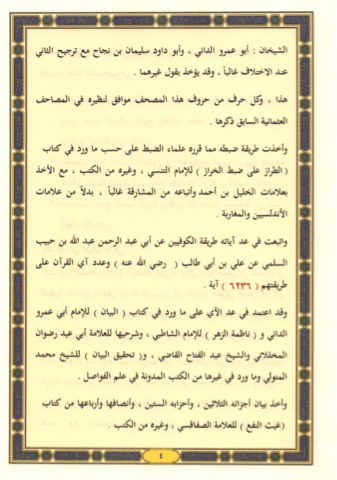 الشيخان : أبو عمرو الداني ، وأبو داود سليمان بن نجاح مع ترجيح الثاني
عند الاختلاف غالباً ، وقد يؤخذ بقول غيرهما .
هذا ، وكل حرف من حروف هذا المصحف موافق لنظيره في المصاحف
العثمانية السابق ذكرها .
وأخذت طريقة ضبطه مما قرره علماء الضبط على حسب ما ورد في كتاب
( الطراز على ضبط الخراز ) للإمام التنسي ، وغيره من الكتب ، مع الأخذ
بعلامات الخليل بن أحمد وأتباعه من المشارقة غالباً ، بدلاً من علامات
الأندلسيين والمغاربة .
واتبعت في عد آياته طريقة الكوفيين عن أبي عبد الرحمن عبد الله بن حبيب
السلمي عن علي بن أبي طالب ( رضي الله عنه ) وعدد آي القرآن على
طريقتهم ( ٦٢٣٦ ) آية .
وقد اعتمد في عد الآي على ما ورد في كتاب ( البيان ) للإمام أبي عمرو
الداني و ( ناظمة الزهر ) للإمام الشاطبي ، وشرحيها للعلامة أبي عيد رضوان
المخللاتي والشيخ عبد الفتاح القاضي ، و( تحقيق البيان ) للشيخ محمد
المتولي وما ورد في غيرها من الكتب المدونة في علم الفواصل .
وأخذ بيان أجزائه الثلاثين ، وأحزابه الستين ، وأنصافها وأرباعها من كتاب
(غيث النفع ) للعلامة الصفاقسي ، وغيره من الكتب .
٤